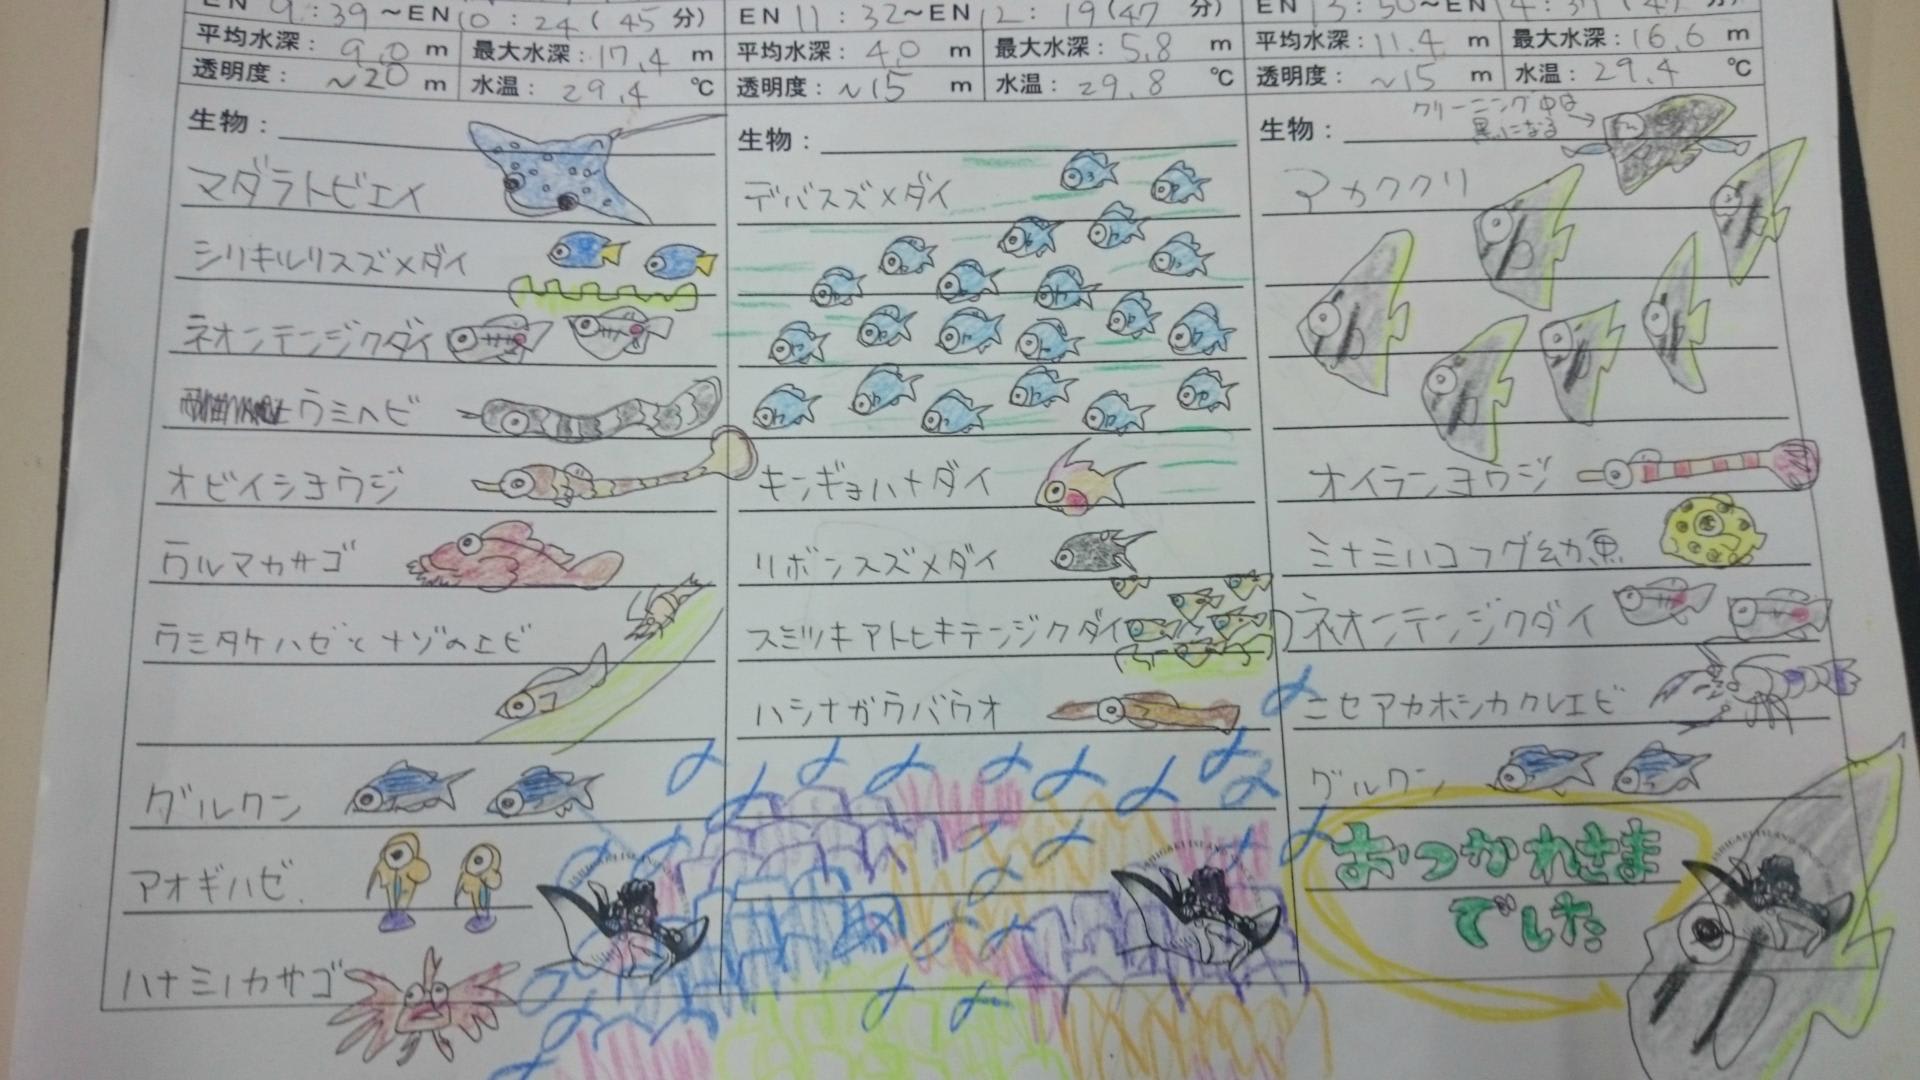 EN 9:39～EN 10:24(45分)
平均水深：9.0 m 最大水深：17.4 m
透明度：～20 m 水温：29.4 ℃
生物：
マダラトビエイ
シリキルリスズメダイ
ネオンテンジクダイ
ウミヘビ
オビイシヨウジ
ウルマカサゴ
ウミタケハゼとナゾのエビ
グルクン
アオギハゼ.
ハナミノカサゴ
EN 11:32～EN 12:19(47分)
平均水深：4.0 m 最大水深：5.8 m
透明度：～15 m 水温：29.8 ℃
生物：
デバスズメダイ
キンギョハナダイ
リボンスズメダイ
スミツキアトヒキテンジクダイ
ハシナガウバウオ
平均水深：11.4 m 最大水深：16.6 m
透明度：～15 m 水温：29.4 ℃
生物：
クリーニング中は
黒になる→
アカククリ
オイランヨウジ
ミナミハコフグ幼魚
ネオンテンジクダイ
ニセアカホシカクレエビ
グルクン
おつかれさま
でした